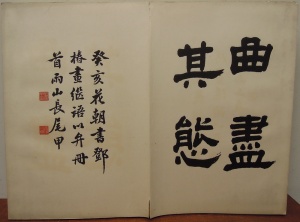 曲盡
其態
癸亥花朝書鄧
椿畫繼語以弁冊
首雨山長尾甲